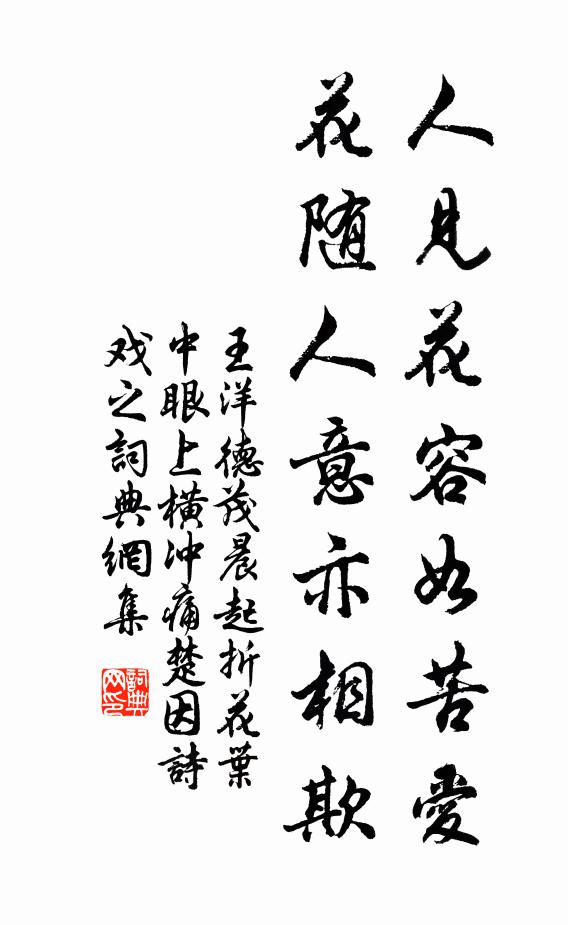 人見花容如苦愛
花随人意亦相欺
王洋德茂晨起折花葉
中眼上橫冲痛楚因詩
戏之詞典網集
詞典
网印